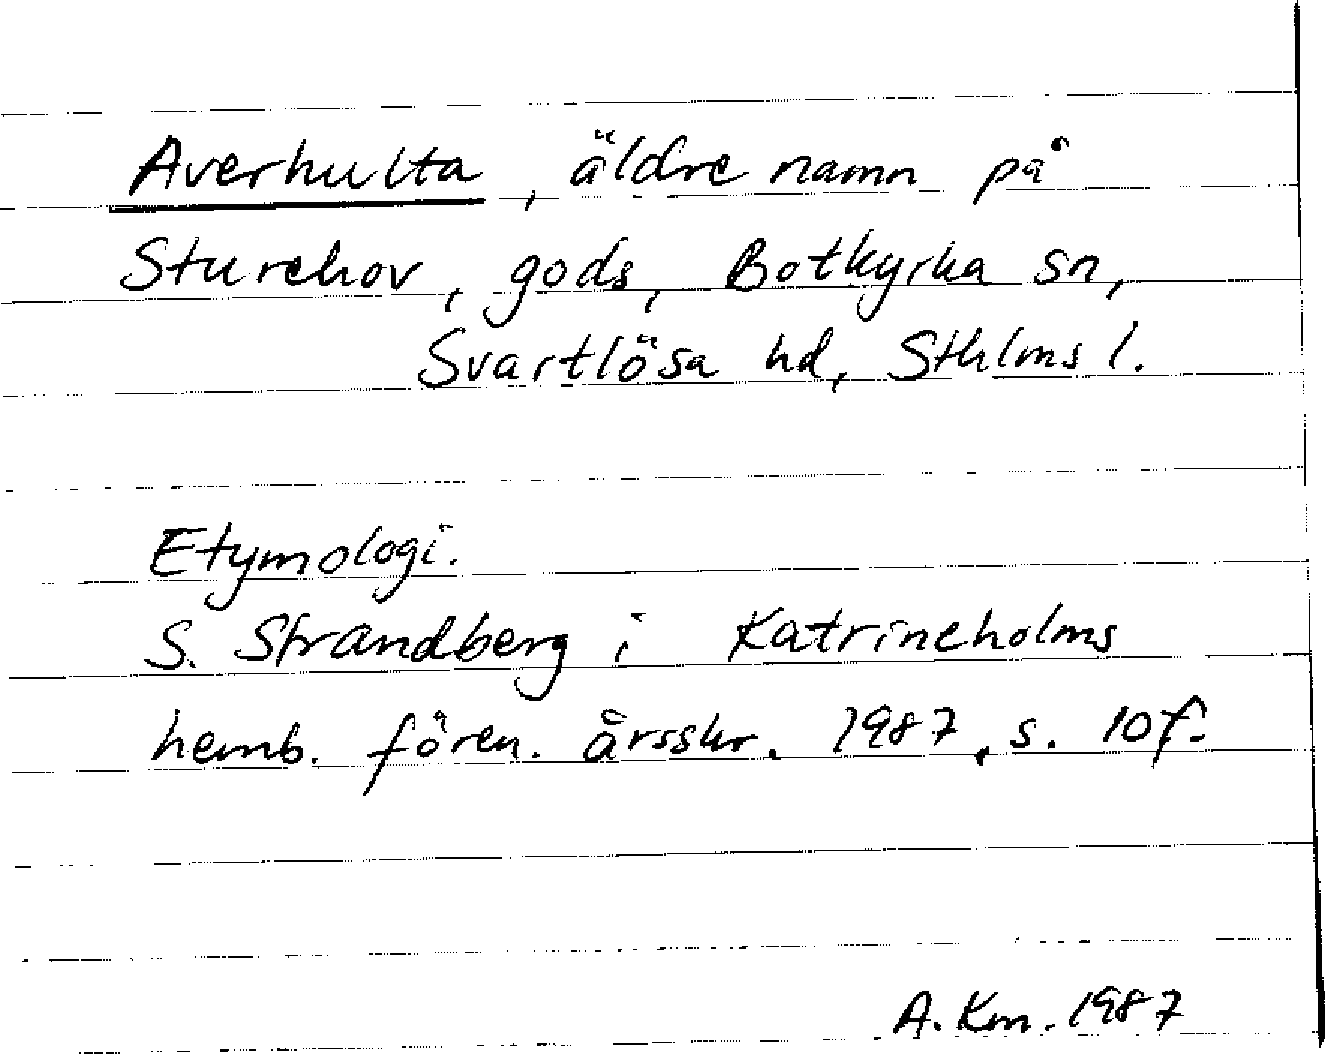 Averhulta, äldre namn på
Sturehov, gods, Botkyrka sn,
Svartlösa hd, Sthlms l.
Etymologi.
S. Strandberg i Katrineholms
hemb. fören. årsskr. 1987, s. 10f.
A. Km. 1987